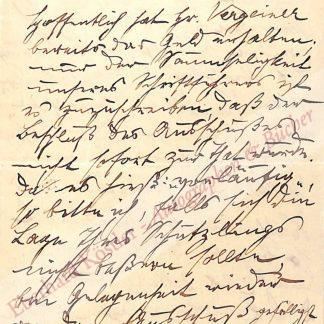 Hoffentlich hat Hr. Vergeiner
bereits das Geld erhalten.
nur der Saumseligkeit
unseres Schriftführers ist
es zuzuschreiben daß der
Beschluß des Ausschußes
nicht sofort zur That wurde.
Da es hieß „vorläufig“
so bitte ich, falls sich die
Lage Ihres Schützlings
nicht beßern sollte,
bei Gelegenheit wieder
an den Ausschuß gefälligst